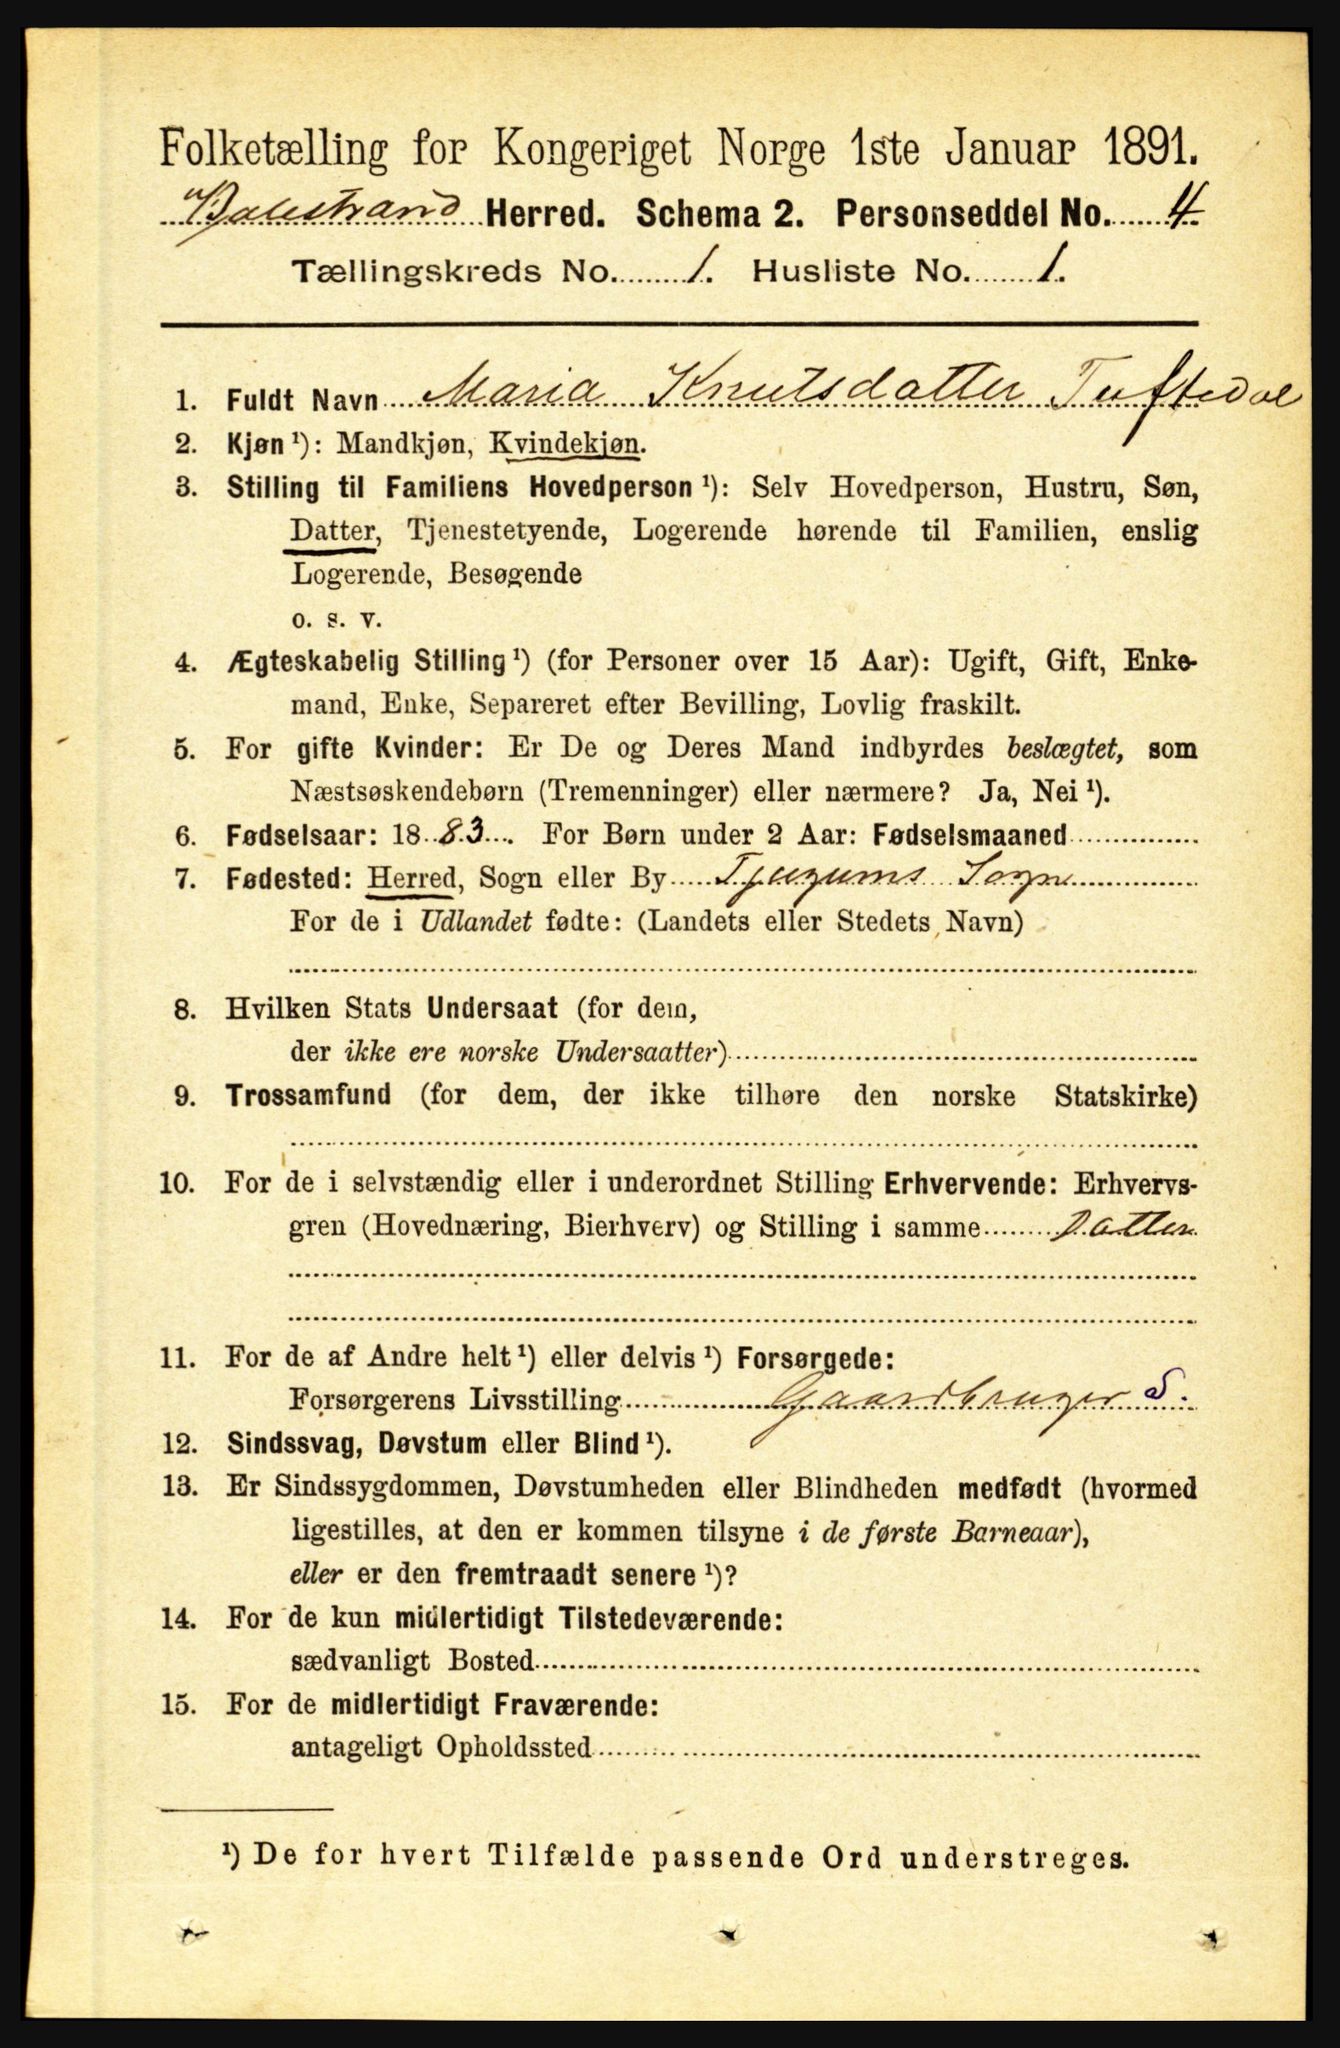 Folketælling for Kongeriget Norge 1ste Januar 1891.
Balestrand Herred. Schema 2. Personseddel No. 4
Tællingskreds No. 1. Husliste No. 1.
1. Fuldt Navn Maria Knutsdatter Tuftedal
2. Kjøn ¹): Mandkjøn, Kvindekjøn.
3. Stilling til Familiens Hovedperson ¹): Selv Hovedperson, Hustru, Søn,
Datter, Tjenestetyende, Logerende hørende til Familien, enslig
Logerende, Besøgende
o. s. v.
4. Ægteskabelig Stilling ¹) (for Personer over 15 Aar): Ugift, Gift, Enke-
mand, Enke, Separeret efter Bevilling, Lovlig fraskilt.
5. For gifte Kvinder: Er De og Deres Mand indbyrdes beslægtet, som
Næstsøskendebørn (Tremenninger) eller nærmere? Ja, Nei ¹).
6. Fødselsaar: 1883. For Børn under 2 Aar: Fødselsmaaned
7. Fødested: Herred, Sogn eller By Tjugums Sogn
For de i Udlandet fødte: (Landets eller Stedets Navn)
8. Hvilken Stats Undersaat (for dem,
der ikke ere norske Undersaatter)
9. Trossamfund (for dem, der ikke tilhøre den norske Statskirke)
10. For de i selvstændig eller i underordnet Stilling Erhvervende: Erhvervs-
gren (Hovednæring, Bierhverv) og Stilling i samme Datter
11. For de af Andre helt ¹) eller delvis ¹) Forsørgede:
Forsørgerens Livsstilling Gaardbruger S.
12. Sindssvag, Døvstum eller Blind ¹).
13. Er Sindssygdommen, Døvstumheden eller Blindheden medfødt (hvormed
ligestilles, at den er kommen tilsyne i de første Barneaar),
eller er den fremtraadt senere ¹)?
14. For de kun midlertidigt Tilstedeværende:
sædvanligt Bosted
15. For de midlertidigt Fraværende:
antageligt Opholdssted
¹) De for hvert Tilfælde passende Ord understreges.